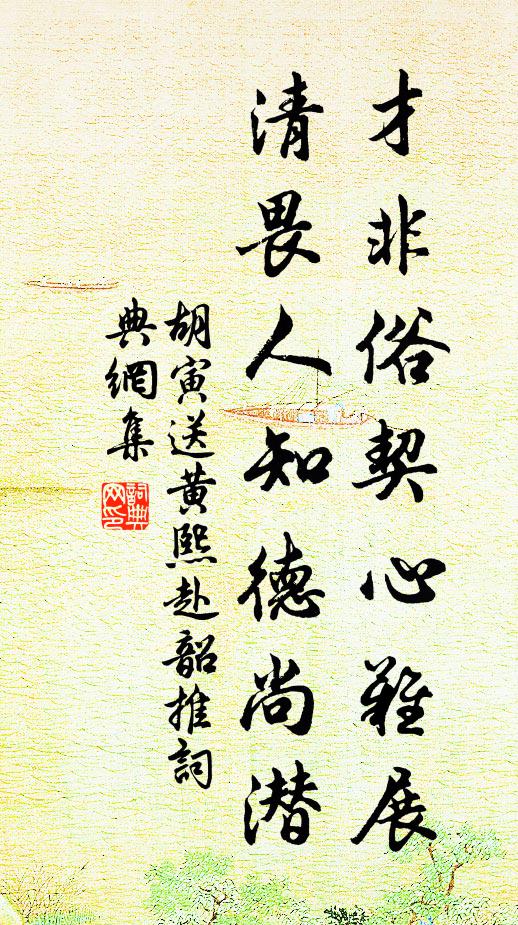 才非俗契心難展
清畏人知德尚潜
胡寅送黄熙赴韶推詞
典網集
詞典
网印